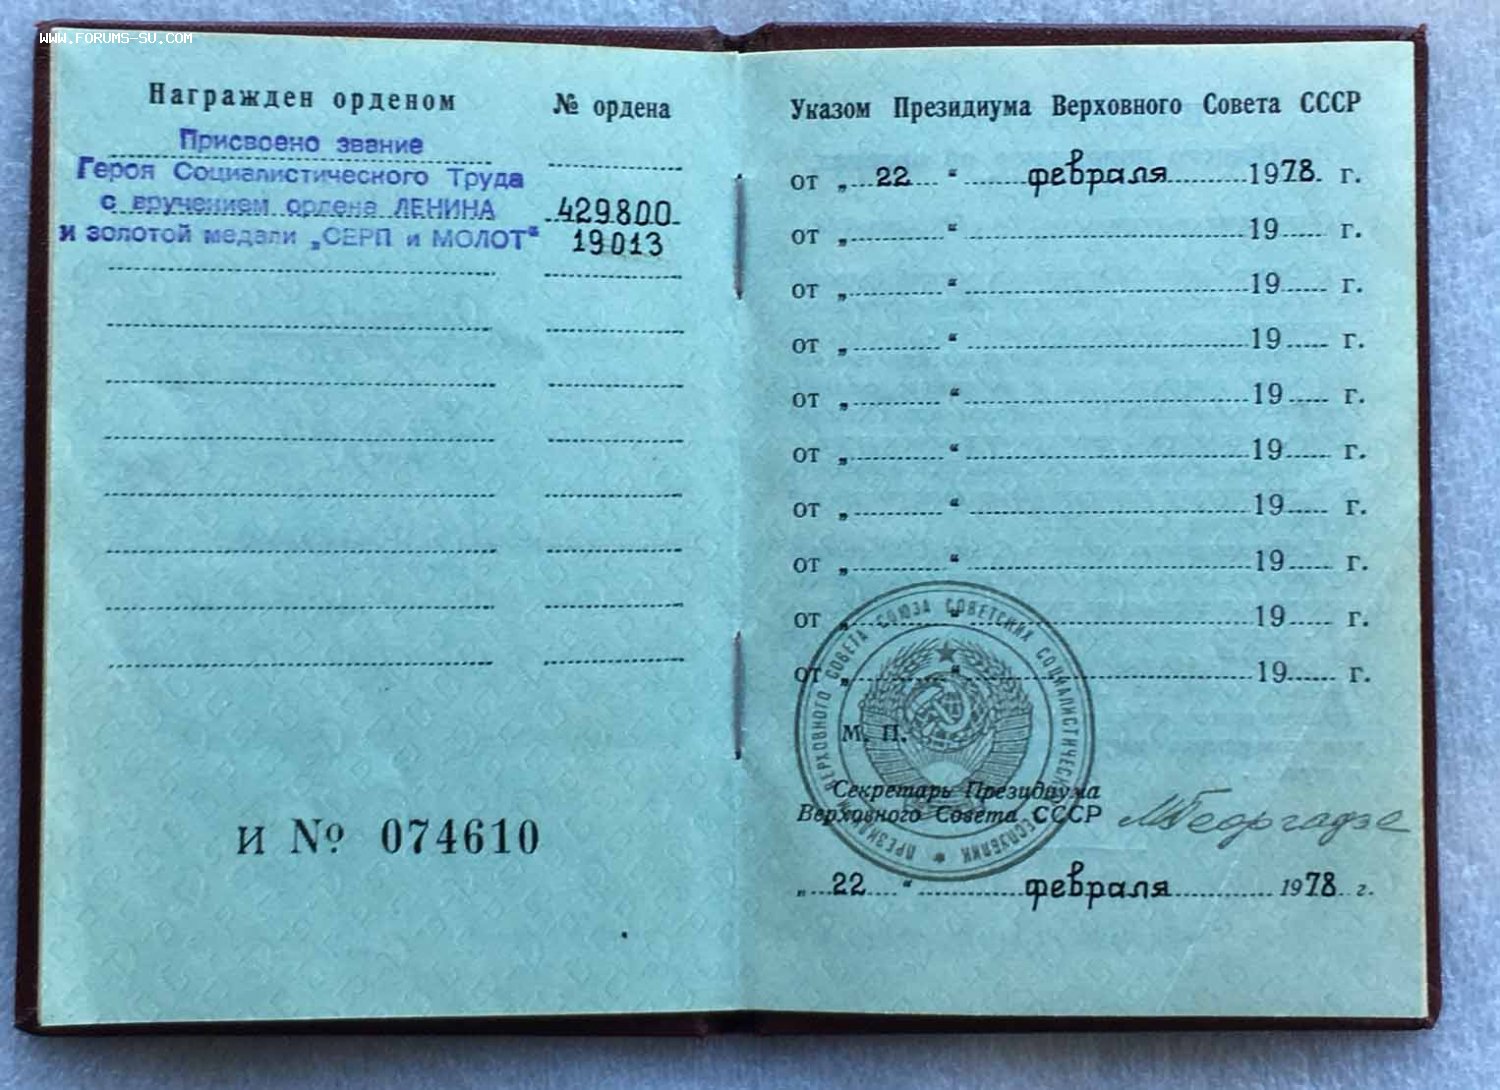 WWW.FORUMS-SU.COM
Награжден орденом
№ ордена
Присвоено звание
Героя Социалистического Труда
с вручением ордена ЛЕНИНА
429800
и золотой медали „СЕРП и МОЛОТ“
19013
И № 074610
Указом Президиума Верховного Совета СССР
от „ 22 “ февраля 1978 г.
от „ “ 19 г.
от „ “ 19 г.
от „ “ 19 г.
от „ “ 19 г.
от „ “ 19 г.
от „ “ 19 г.
от „ “ 19 г.
от „ “ 19 г.
от „ “ 19 г.
ПРЕЗИДИУМ ВЕРХОВНОГО СОВЕТА СОЮЗА СОВЕТСКИХ СОЦИАЛИСТИЧЕСКИХ РЕСПУБЛИК
М. П.
Секретарь Президиума
Верховного Совета СССР
МГеоргадзе
„ 22 “ февраля 1978 г.